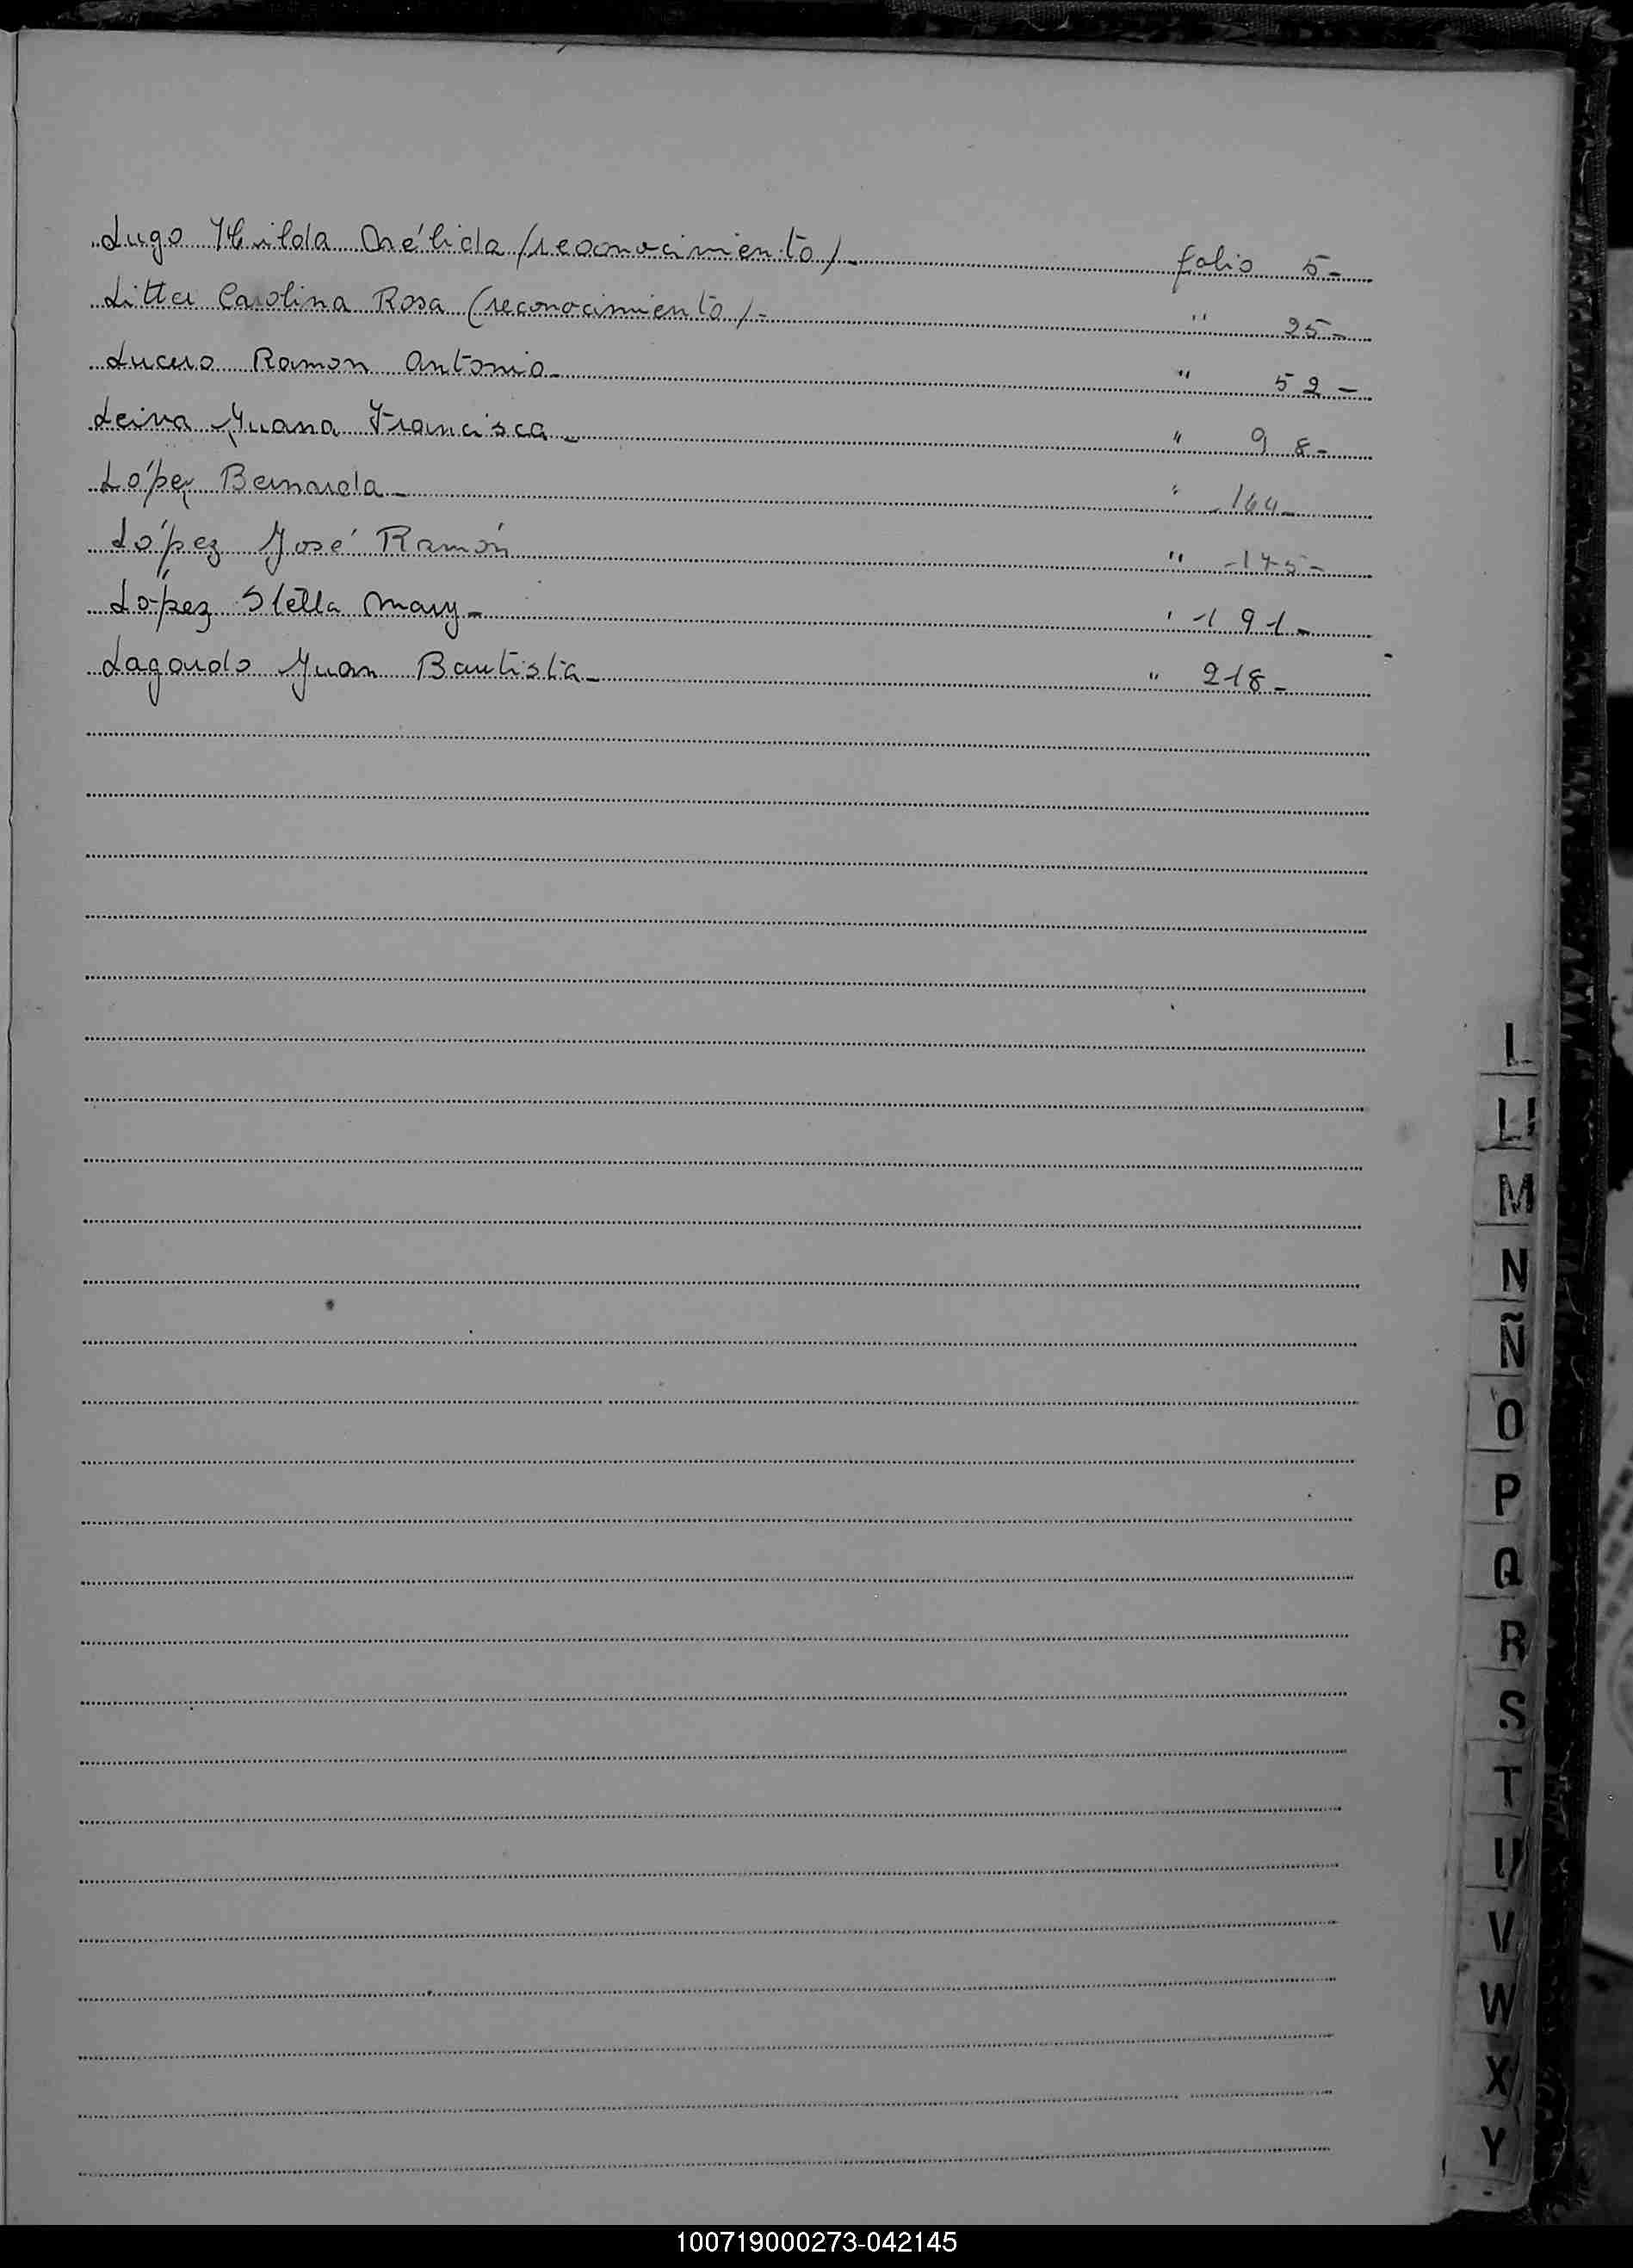 Lugo Hilda Nélida (reconocimiento)- folio 5-
Litta Carolina Rosa (reconocimiento)- " 25-
Lucero Ramon Antonio- " 52-
Leiva Juana Francisca- " 98-
López Bernarda- " 164-
López José Ramón " -175-
López Stella Mary- " 191-
Lagardo Juan Bautista- " 218-
L
Ll
M
N
Ñ
O
P
Q
R
S
T
U
V
W
X
Y
100719000273-042145